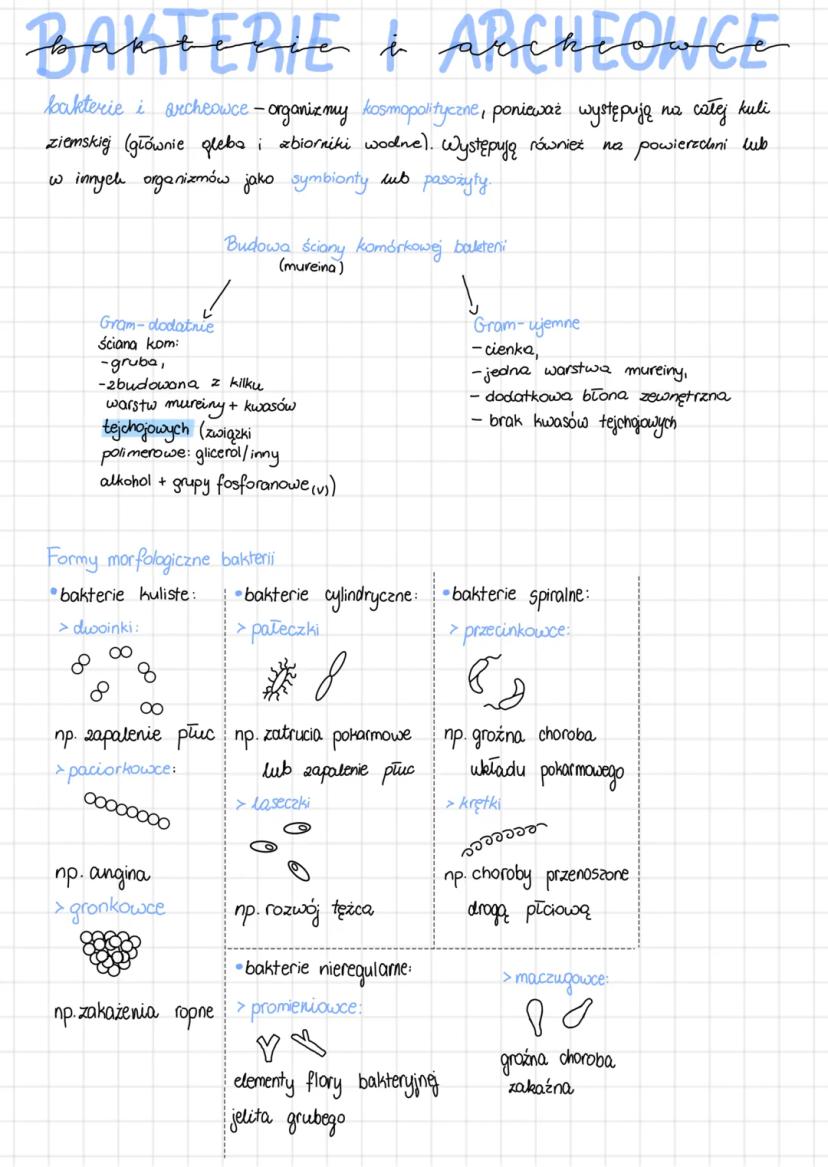 BAKTERIE I ARCHEOWCE
bakterie i archeowce
bakterie i archeowce – organizmy kosmopolityczne, ponieważ występują na całej kuli
ziemskiej (głównie gleba i zbiorniki wodne). Występują również na powierzchni lub
w innych organizmów jako symbionty lub pasożyty.
Budowa ściany komórkowej bakterii
(mureina)
Gram-dodatnie
ściana kom:
-gruba,
-zbudowana z kilku
warstw mureiny + kwasów
tejchojowych (związki
polimerowe: glicerol/inny
alkohol + grupy fosforanowe(v))
Gram-ujemne
-cienka,
-jedna warstwa mureiny,
- dodatkowa błona zewnętrzna
- brak kwasów tejchojowych
Formy morfologiczne bakterii
•bakterie kuliste:
> dwoinki:
np. zapalenie płuc
> paciorkowce:
np. angina
> gronkowce
np. zakażenia ropne
•bakterie cylindryczne:
> pałeczki
np. zatrucia pokarmowe
lub zapalenie płuc
> laseczki
np. rozwój tężca
•bakterie spiralne:
> przecinkowce:
np. groźna choroba
układu pokarmowego
> krętki
np. choroby przenoszone
drogą płciową
•bakterie nieregularne:
> promieniowce:
elementy flory bakteryjnej
jelita grubego
> maczugowce:
groźna choroba
zakaźna